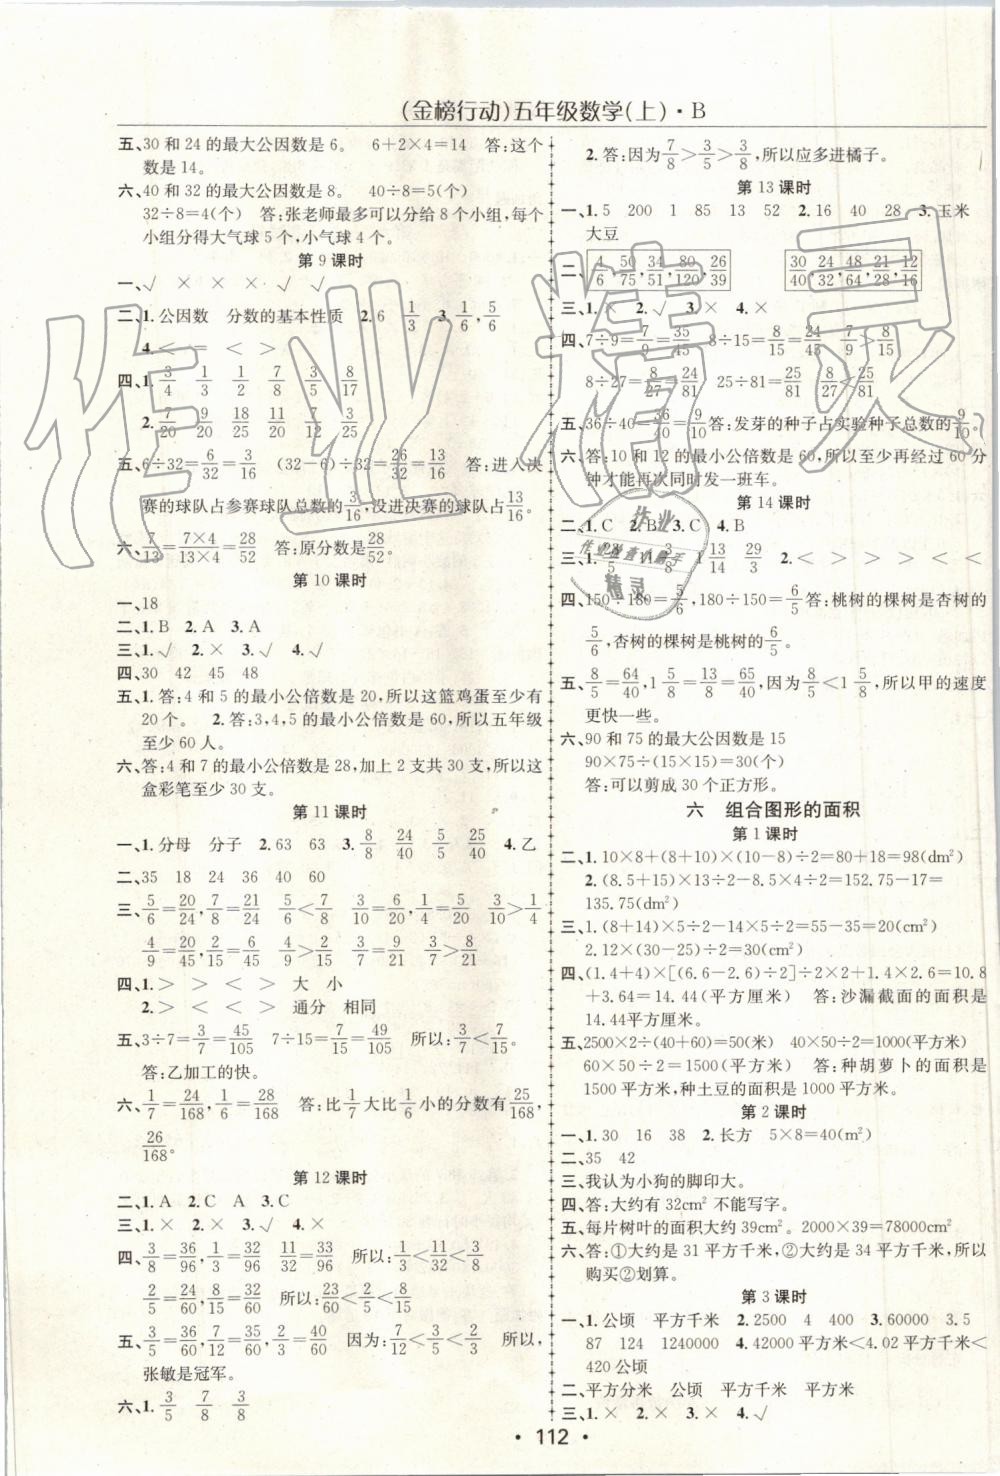 (金榜行动)五年级数学(上)·B
五、30 和 24 的最大公因数是 6。 6+2×4=14 答:这个
数是 14。
六、40 和 32 的最大公因数是 8。 40÷8=5(个)
32÷8=4(个) 答:张老师最多可以分给 8 个小组,每个
小组分得大气球 5 个,小气球 4 个。
第 9 课时
一、√ × × × √ √
二、1.公因数 分数的基本性质 2.6 1/3 3.1/6,5/6
4.< = < >
四、1.3/4 1/3 1/2 7/8 3/5 8/17
2.7/20 9/20 18/25 11/20 7/12 3/25
五、6÷32=6/32=3/16 (32-6)÷32=26/32=13/16 答:进入决
赛的球队占参赛球队总数的3/16,没进决赛的球队占13/16。
六、7/13=7×4/13×4=28/52 答:原分数是28/52。
第 10 课时
一、18
二、1.B 2.A 3.A
三、1.√ 2.× 3.√ 4.√
四、30 42 45 48
五、1.答:4 和 5 的最小公倍数是 20,所以这篮鸡蛋至少有
20 个。 2.答:3,4,5 的最小公倍数是 60,所以五年级
至少 60 人。
六、答:4 和 7 的最小公倍数是 28,加上 2 支共 30 支,所以这
盒彩笔至少 30 支。
第 11 课时
一、1.分母 分子 2.63 63 3.8/8 24/40 5/5 25/40 4.乙
二、35 18 24 36 40 60
三、5/6=20/24,7/8=21/24 5/6<7/8 3/10=6/20,1/4=5/20 3/10>1/4
4/9=20/45,2/15=6/45 4/9>2/15 3/7=9/21 3/7>8/21
四、1.> > < > 大 小
2.> < < > 通分 相同
五、3÷7=3/7=45/105 7÷15=7/15=49/105 所以:3/7<7/15。
答:乙加工的快。
六、1/7=24/168,1/6=28/168 答:比1/7大比1/6小的分数有25/168,
26/168。
第 12 课时
二、1.A 2.C A 3.C
三、1.× 2.× 3.√ 4.×
四、3/8=36/96,1/3=32/96 11/32=33/96 所以:1/3<11/32<3/8
2/5=24/60,8/15=32/60 所以:23/60<2/5<8/15
五、3/5=36/60,7/12=35/60,2/3=40/60 因为:7/12<3/5<2/3 所以,
张敏是冠军。
六、1.3/5 7/8 3/8
2.答:因为7/8>3/5>3/8,所以应多进橘子。
第 13 课时
一、1.5 200 1 85 13 52 2.16 40 28 3.玉米
大豆
二、4/6,50/75,34/51,80/120,26/39 30/40 24/32,48/64,21/28,12/16
三、1.× 2.√ 3.× 4.×
四、7÷9=7/9=35/45 8÷15=8/15=24/45 7/9>8/15
8÷27=8/27=24/81 25÷81=25/81 8/27<25/81
五、36÷40=36/40=9/10 答:发芽的种子占实验种子总数的9/10。
六、答:10 和 12 的最小公倍数是 60,所以至少再经过 60 分
钟才能再次同时发一班车。
第 14 课时
二、1.C 2.B 3.C 4.B
三、1.28/5 1 3/8 1 13/14 29/3 2.< > > > < <
四、150÷180=5/6,180÷150=6/5 答:桃树的棵树是杏树的
5/6,杏树的棵树是桃树的6/5。
五、8/5=64/40,1 5/8=13/8=65/40,因为8/5<1 5/8,所以甲的速度
更快一些。
六、90 和 75 的最大公因数是 15
90×75÷(15×15)=30(个)
答:可以剪成 30 个正方形。
六 组合图形的面积
第 1 课时
二、1.10×8+(8+10)×(10-8)÷2=80+18=98(dm²)
2.(8.5+15)×13÷2-8.5×4÷2=152.75-17=
135.75(dm²)
三、1.(8+14)×5÷2-14×5÷2=55-35=20(cm²)
2.12×(30-25)÷2=30(cm²)
四、(1.4+4)×[(6.6-2.6)÷2]÷2×2+1.4×2.6=10.8
+3.64=14.44(平方厘米) 答:沙漏截面的面积是
14.44平方厘米。
五、2500×2÷(40+60)=50(米) 40×50÷2=1000(平方米)
60×50÷2=1500(平方米) 答:种胡萝卜的面积是
1500 平方米,种土豆的面积是 1000 平方米。
第 2 课时
一、1.30 16 38 2.长方 5×8=40(m²)
二、35 42
三、我认为小狗的脚印大。
四、答:大约有 32cm² 不能写字。
五、每片树叶的面积大约 39cm²。2000×39=78000cm²
六、答:①大约是 31 平方千米,②大约是 34 平方千米,所以
购买②划算。
第 3 课时
一、1.公顷 平方千米 2.2500 4 400 3.60000 3.5
87 124 1240000 4.42000 平方米<4.02 平方千米<
420 公顷
二、平方分米 公顷 平方千米 平方米
三、1.× 2.× 3.× 4.√
·112·
作业精灵
作业
作业检查小助手
精灵